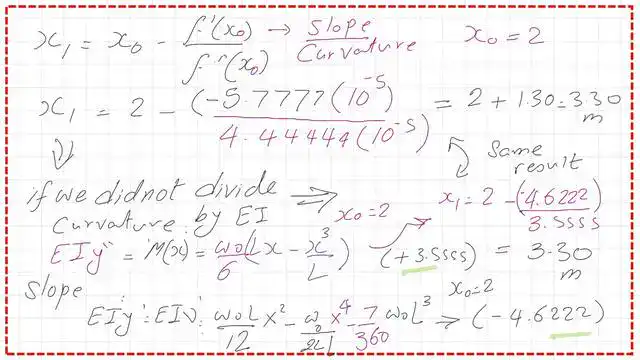 x₁ = x₀ - f'(x₀)/f''(x₀) → Slope/Curvature x₀ = 2
x₁ = 2 - (-5.7777(10⁻⁵)/4.44444(10⁻⁵)) = 2 + 1.30 = 3.30 m
Same result
if we did not divide ⇒ x₁ = 2 - (-4.6222)/3.5555
Curvature by EI x₀ = 2
EIy'' = M(x) = w₀/6 (Lx - x³/L) (+3.5555) = 3.30 m
Slope x₀ = 2
EIy' = EIν' = w₀L/12 x² - w₀/24L x⁴ - 7/360 w₀L³ ⇒ (-4.6222)